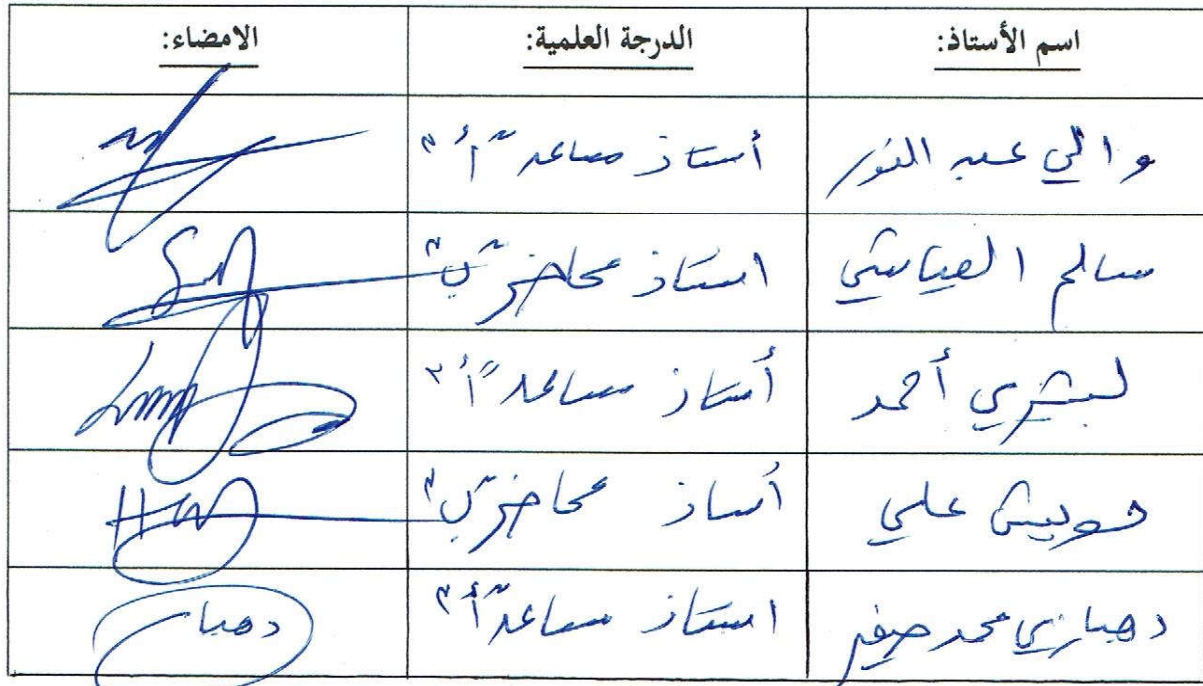 اسم الأستاذ: الدرجة العلمية: الامضاء:
والي عبد النور أستاذ مساعد "أ"
سالم العياشي استاذ محاضر "ب"
لبشري أحمد أستاذ مساعد "أ"
حويش علي أستاذ محاضر "ب"
محمد استاذ مساعد "أ"